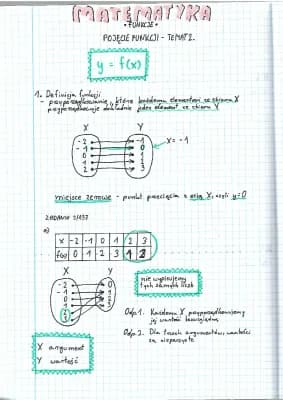 MATEMATYKA
• FUNKCJE •
POJĘCIE FUNKCJI - TEMAT 1.
y = f(x)
1. Definicja funkcji
- przyporządkowanie, które każdemu elementowi ze zbioru X
przyporządkowuje dokładnie jeden element ze zbioru Y
X Y
-2 -1
-1 0
0 1
1 2
2 3
x = -1
miejsce zerowe - punkt przecięcia z osią X, czyli y=0
ZADANIE 2/133
a)
X -2 -1 0 1 2 3
f(x) 0 1 2 3 1 2
X Y
-2
-1
0
1
2
3
0
1
2
3
nie wpisujemy
tych samych liczb
Odp 1. Każdemu X przyporządkowujemy
jej wartość
Odp 2. Dla trzech argumentów wartości
są nieparzyste
X argument
Y wartość